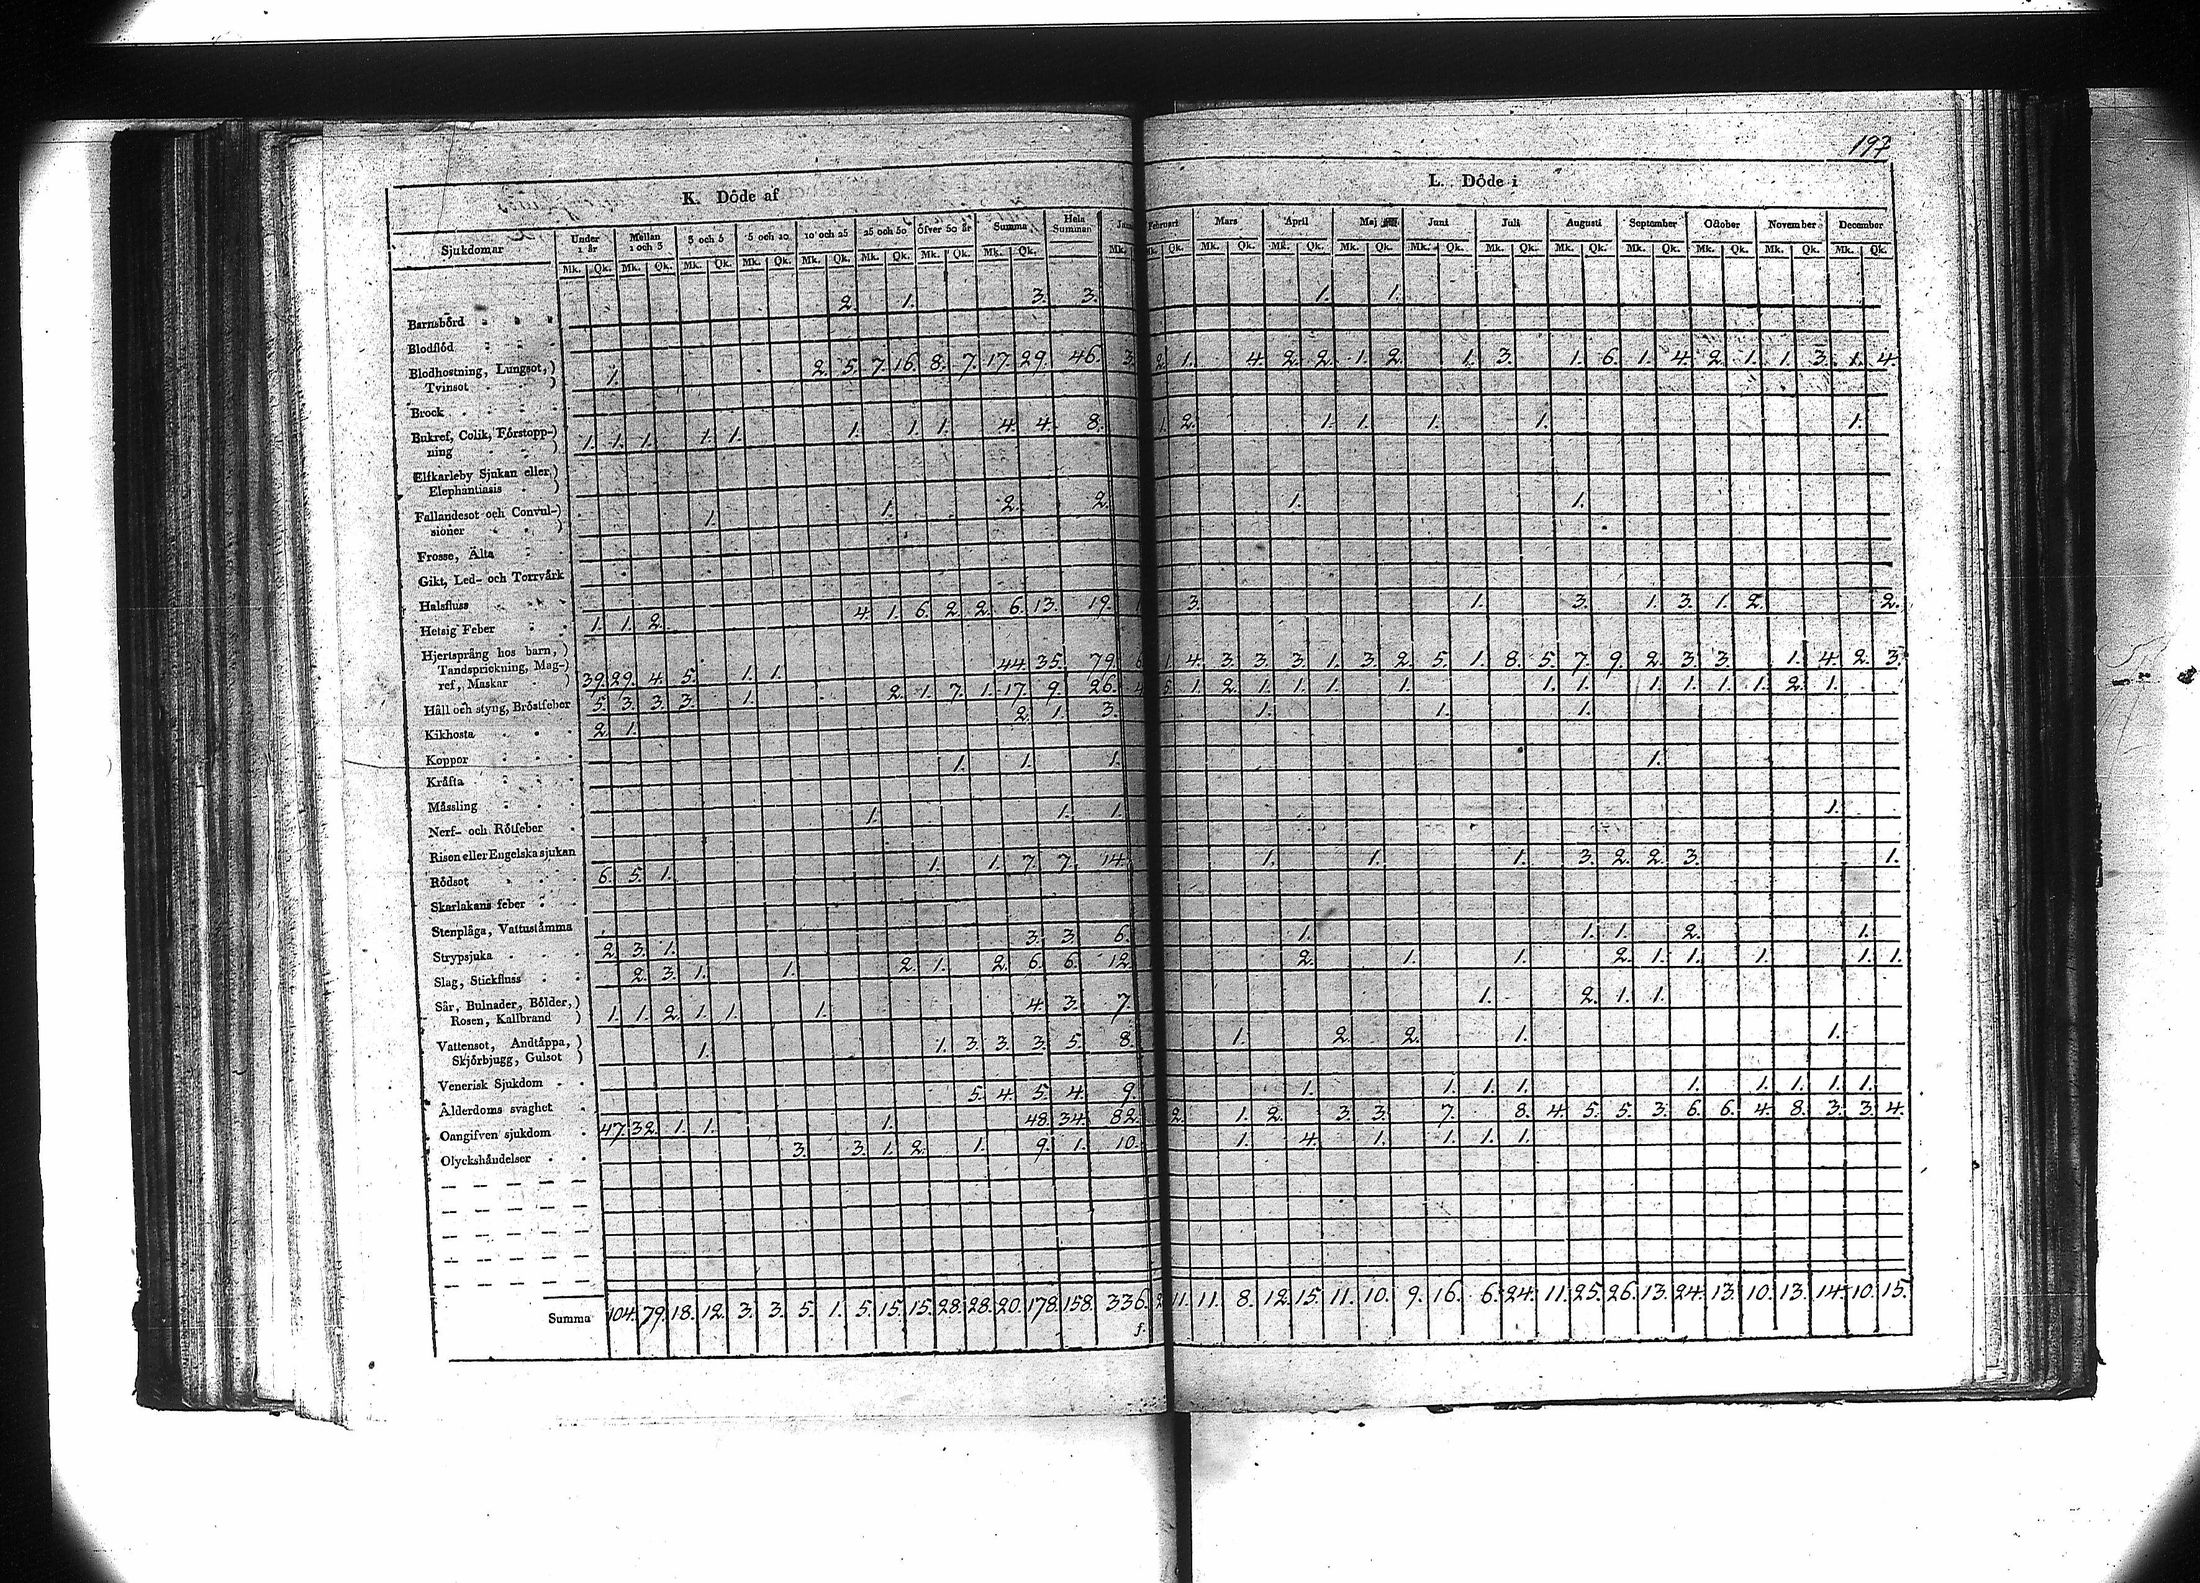 197
K. Död​e af
L. Döde i
Sjukdomar Under 1 år Mellan 1 och 3 3 och 5 5 och 10 10 och 25 25 och 50 Öfver 50 år Summa Hela Summan Februari Mars April Maj Juni Juli Augusti September October November December
Mk. Qk. Mk. Qk. Mk. Qk. Mk. Qk. Mk. Qk. Mk. Qk. Mk. Qk. Mk. Qk. Mk. Mk. Qk. Mk. Qk. Mk. Qk. Mk. Qk. Mk. Qk. Mk. Qk. Mk. Qk. Mk. Qk. Mk. Qk. Mk. Qk. Mk. Qk.
Barnsbörd 2. 1. 3. 3. 1. 1.
Blodflöd
Blodhostning, Lungsot,) 1. 2. 5. 7. 16. 8. 7. 17. 29. 46. 3. 2. 1. 4. 2. 2. 1. 2. 1. 3. 1. 6. 1. 4. 2. 1. 1. 3. 1. 4.
Tvinsot )
Brock
Bukref, Colik, Förstopp-) 1. 1. 1. 1. 1. 1. 1. 1. 4. 4. 8. 1. 2. 1. 1. 1. 1. 1.
ning )
Elfkarleby Sjukan eller)
Elephantiasis )
Fallandesot och Convul-) 1. 1. 2. 2. 1. 1.
sioner )
Frosse, Älta
Gikt, Led- och Torrvärk
Halsfluss
Hetsig Feber 1. 1. 2. 4. 1. 6. 2. 2. 6. 13. 19. 3. 1. 3. 1. 3. 1. 2. 2.
Hjertsprång hos barn, )
Tandsprickning, Mag-)
ref, Maskar ) 39. 29. 4. 5. 1. 1. 44. 35. 79. 1. 4. 3. 3. 3. 1. 3. 2. 5. 1. 8. 5. 7. 9. 2. 3. 3. 1. 4. 2. 3.
Håll och styng, Bröstfeber 5. 3. 3. 3. 1. 2. 1. 7. 1. 17. 9. 26. 4. 5. 1. 2. 1. 1. 1. 1. 1. 1. 1. 1. 1. 1. 2. 1.
Kikhosta 2. 1. 2. 1. 3. 1. 1. 1.
Koppor
Kräfta 1. 1. 1. 1.
Mässling
Nerf- och Rötfeber 1. 1. 1. 1.
Risen eller Engelska sjukan
Rödsot 6. 5. 1. 1. 1. 7. 7. 14. 1. 1. 1. 3. 2. 2. 3. 1.
Skarlakans feber
Stenplåga, Vattustämma
Strypsjuka 2. 3. 1. 3. 3. 6. 1. 1. 1. 2. 1.
Slag, Stickfluss 2. 3. 1. 1. 2. 1. 2. 6. 6. 12. 2. 1. 1. 2. 1. 1. 1. 1. 1.
Sår, Bulnader, Bölder,) 1. 1. 2. 1. 1. 1. 4. 3. 7. 1. 2. 1. 1.
Rosen, Kallbrand )
Vattensot, Andtäppa, ) 1. 1. 3. 3. 3. 5. 8. 1. 2. 2. 1. 1.
Skjörbjugg, Gulsot )
Venerisk Sjukdom
Ålderdoms svaghet 5. 4. 5. 4. 9. 1. 1. 1. 1. 1. 1. 1. 1. 1.
Oangifven sjukdom 47. 32. 1. 1. 1. 48. 34. 82. 2. 1. 2. 3. 3. 7. 8. 4. 5. 5. 3. 6. 6. 4. 8. 3. 3. 4.
Olyckshändelser 3. 3. 1. 2. 1. 9. 1. 10. 1. 4. 1. 1. 1. 1.
Summa 104. 79. 18. 12. 3. 3. 5. 1. 5. 15. 15. 28. 28. 20. 178. 158. 336. 11. 11. 8. 12. 15. 11. 10. 9. 16. 6. 24. 11. 25. 26. 13. 24. 13. 10. 13. 14. 10. 15.